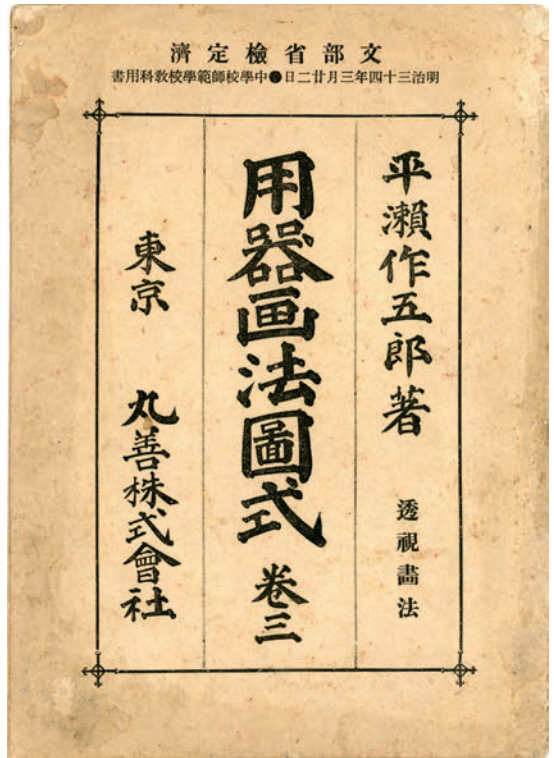 文部省檢定濟
明治三十四年三月廿二日●中學校師範學校敎科用書
平瀨作五郎著
透視畵法
用器画法圖式 卷三
東京 丸善株式會社